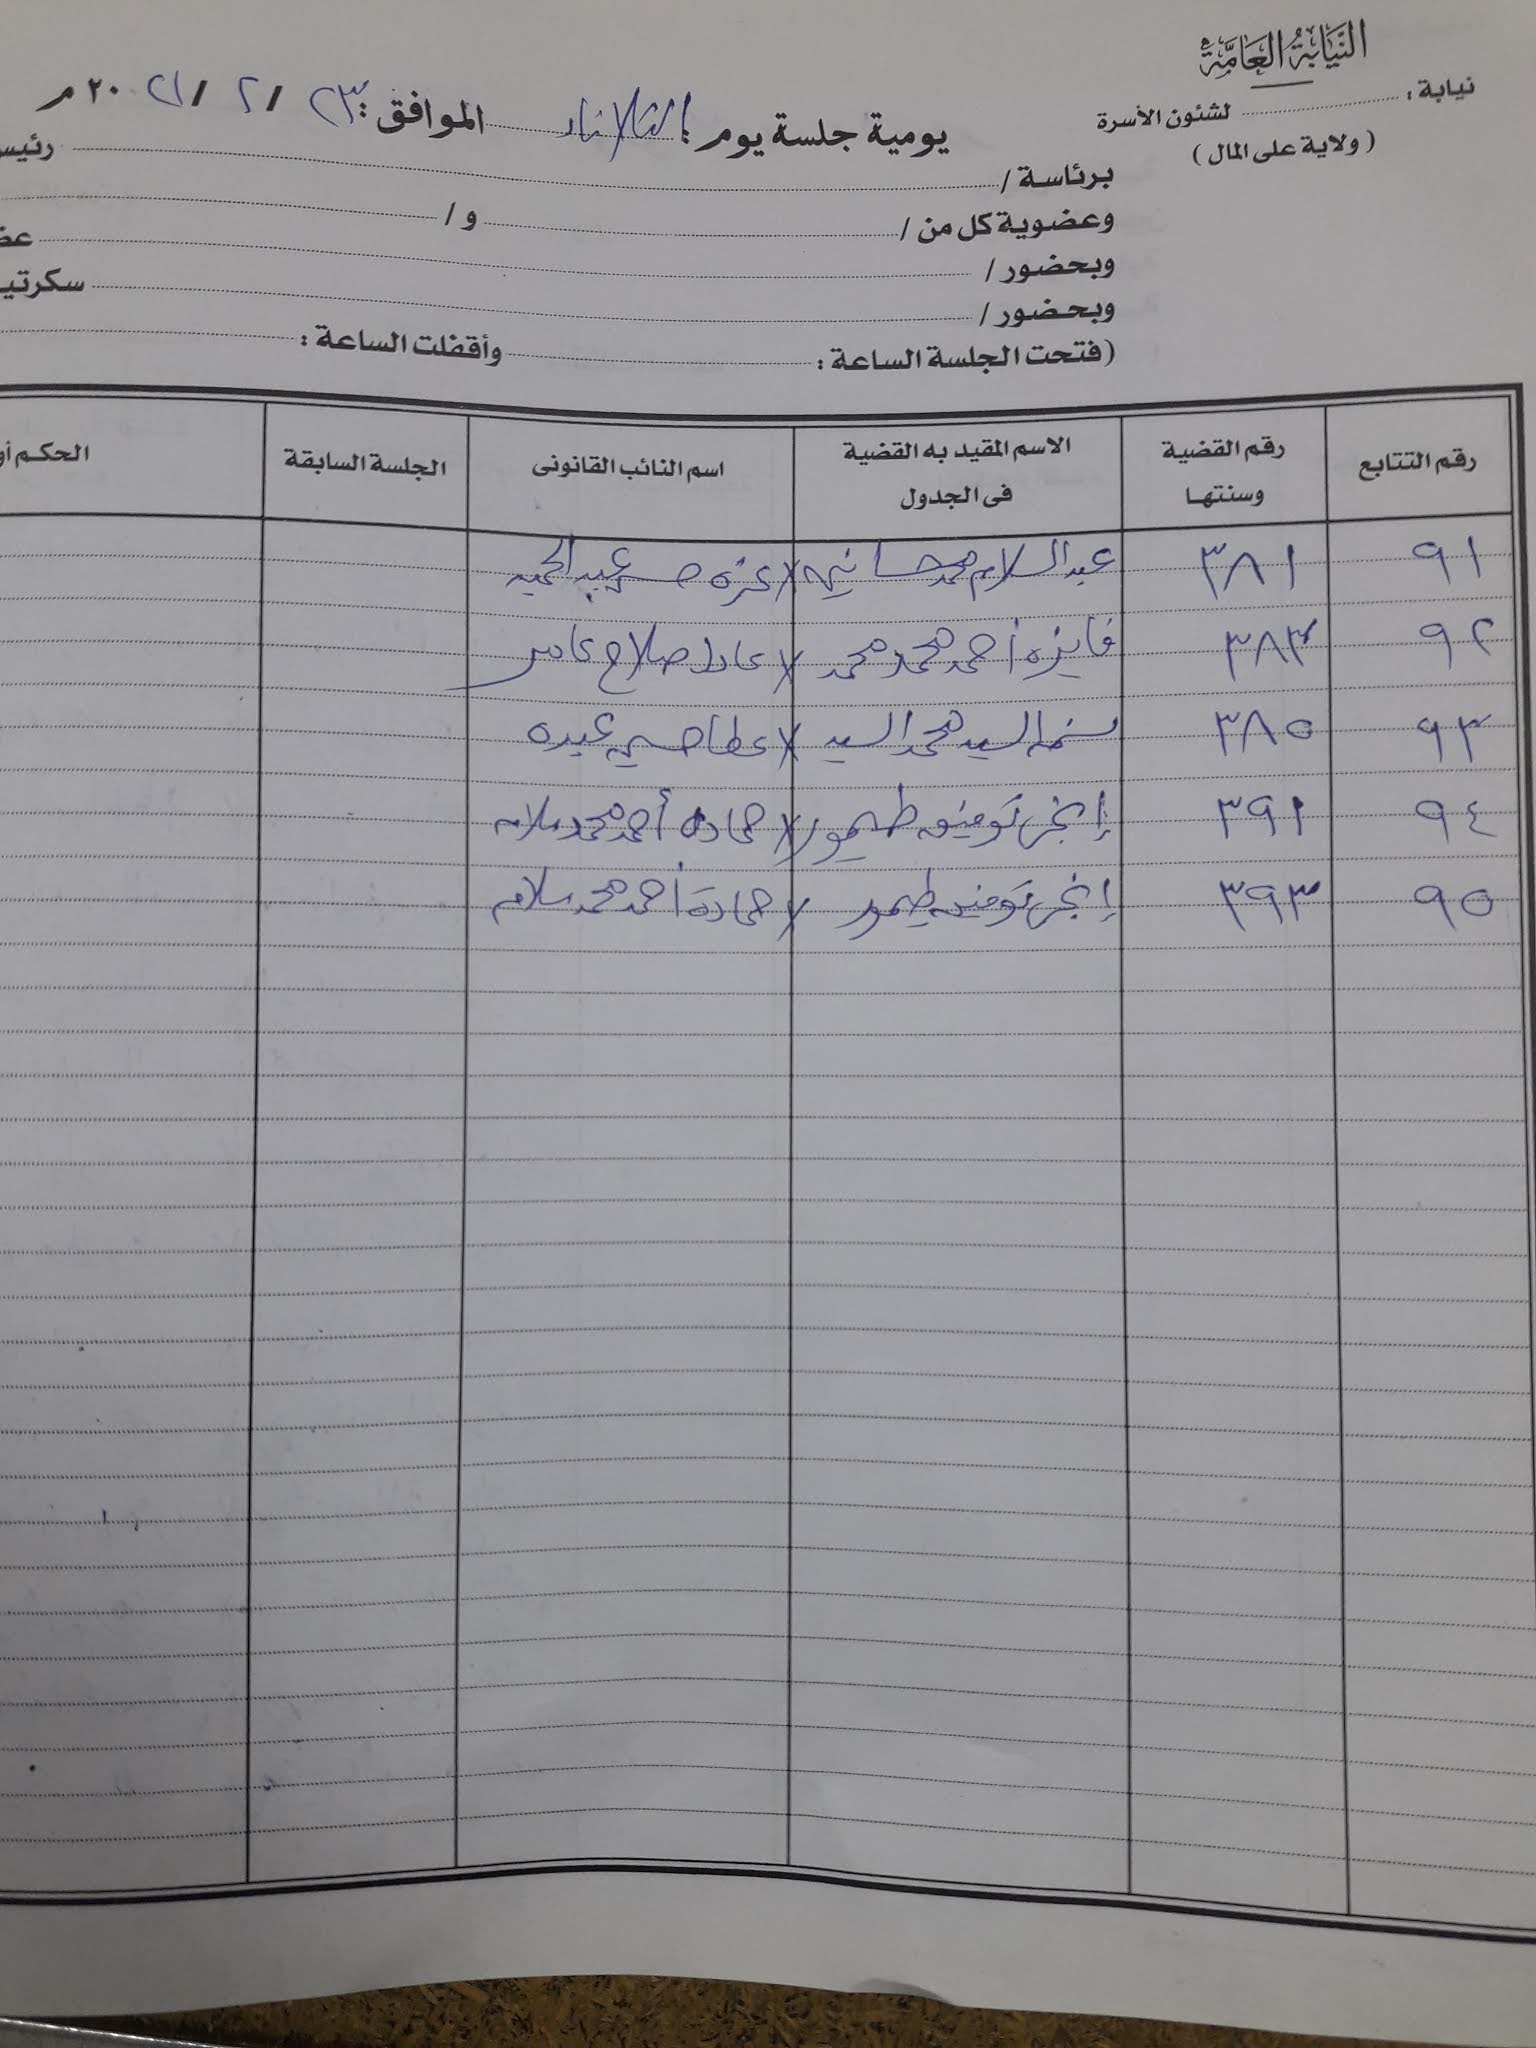 النيابة العامة
نيابة : لشئون الأسرة
( ولاية على المال )
يومية جلسة يوم : الثلاثاء الموافق : ٢٣ / ٢ / ٢٠٢١ م
برئاسة / رئيس
وعضوية كل من / و /
وبحضور /
وبحضور /
(فتحت الجلسة الساعة : وأقفلت الساعة :
رقم التتابع رقم القضية وسنتها الاسم المقيد به القضية فى الجدول اسم النائب القانونى الجلسة السابقة الحكم
٩١ ٣٨١ عبد السلام محمد / عزه عبد الحميد
٩٢ ٣٨٣ فايزه أحمد محمد محمد / عادل صلاح عامر
٩٣ ٣٨٥ السيد محمد السيد / عطا عبده
٩٤ ٣٩١ إنجى توفيق طيمور / حماده أحمد محمد سلامه
٩٥ ٣٩٣ إنجى توفيق طيمور / حمادة أحمد محمد سلامه